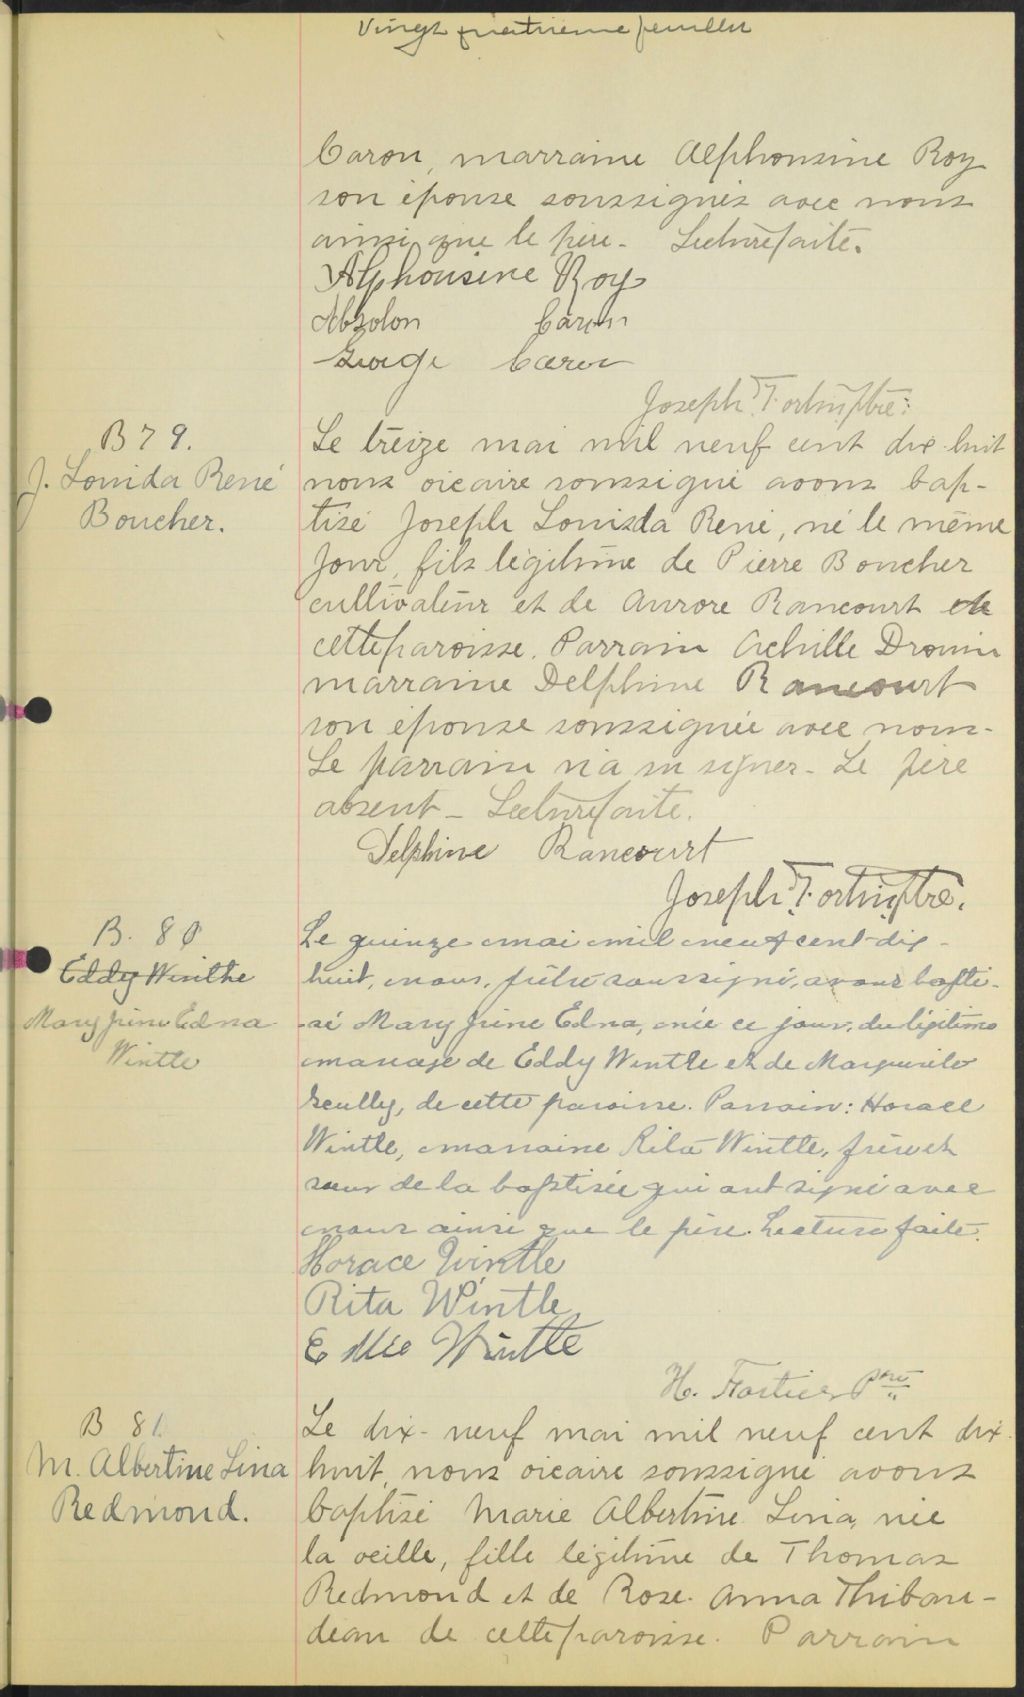 Vingt quatrieme feuillet
Caron, marraine Alphonsine Roy
son épouse soussignés avec nous
ainsi que le père - Lecture faite.
Alphonsine Roy
Absolon Caron
George Caron
Joseph T. Fortin ptre.
B 79.
J. Louida René
Boucher.
Le treize mai mil neuf cent dix-huit
nous vicaire soussigné avons bap-
tisé Joseph Louida René, né le même
jour, fils légitime de Pierre Boucher
cultivateur et de Aurore Rancourt de
cette paroisse. Parrain Achille Drouin
marraine Delphine Rancourt
son épouse soussignée avec nous.
Le parrain n'a su signer - Le père
absent - Lecture faite.
Delphine Rancourt
Joseph T. Fortin ptre.
B. 80
Eddy Winthe
Mary Irène Edna
Wintle
Le quinze mai mil neuf cent-dix-
huit, nous, prêtre soussigné, avons bapti-
-sé Mary Irène Edna, née ce jour, du légitime
mariage de Eddy Wintle et de Marguerite
Scully, de cette paroisse. Parrain: Horace
Wintle, marraine Rita Wintle, frère et
sœur de la baptisée qui ont signé avec
nous ainsi que le père. Lecture faite.
Horace Wintle
Rita Wintle
Eddie Wintle
H. Fortier Ptre
B 81.
M. Albertine Lina
Redmond.
Le dix-neuf mai mil neuf cent dix-
huit, nous vicaire soussigné avons
baptisé Marie Albertine Lina, née
la veille, fille légitime de Thomas
Redmond et de Rose-Anna Thibau-
deau de cette paroisse. Parrain